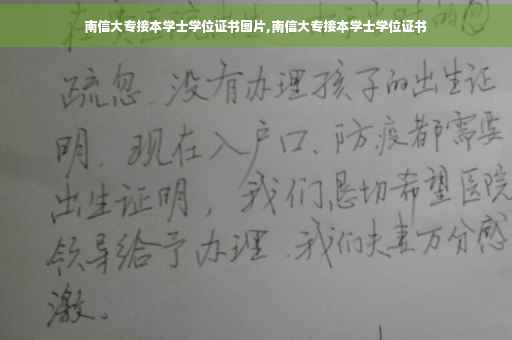 南信大专接本学士学位证书图片,南信大专接本学士学位证书
疏忽、没有办理孩子的出生证
明、现在入户口、防疫都需要
出生证明，我们恳切希望医院
领导给予办理、我们夫妻万分感
激。